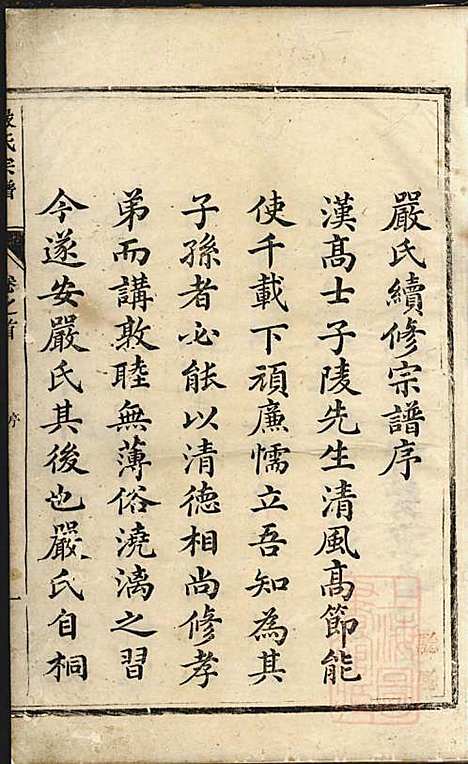 嚴氏續修宗譜序
漢高士子陵先生清風高節能
使千載下頑廉懦立吾知為其
子孫者必能以清德相尚修孝
弟而講敦睦無薄俗澆漓之習
今遂安嚴氏其後也嚴氏自桐
嚴氏宗譜
卷之首
序
一